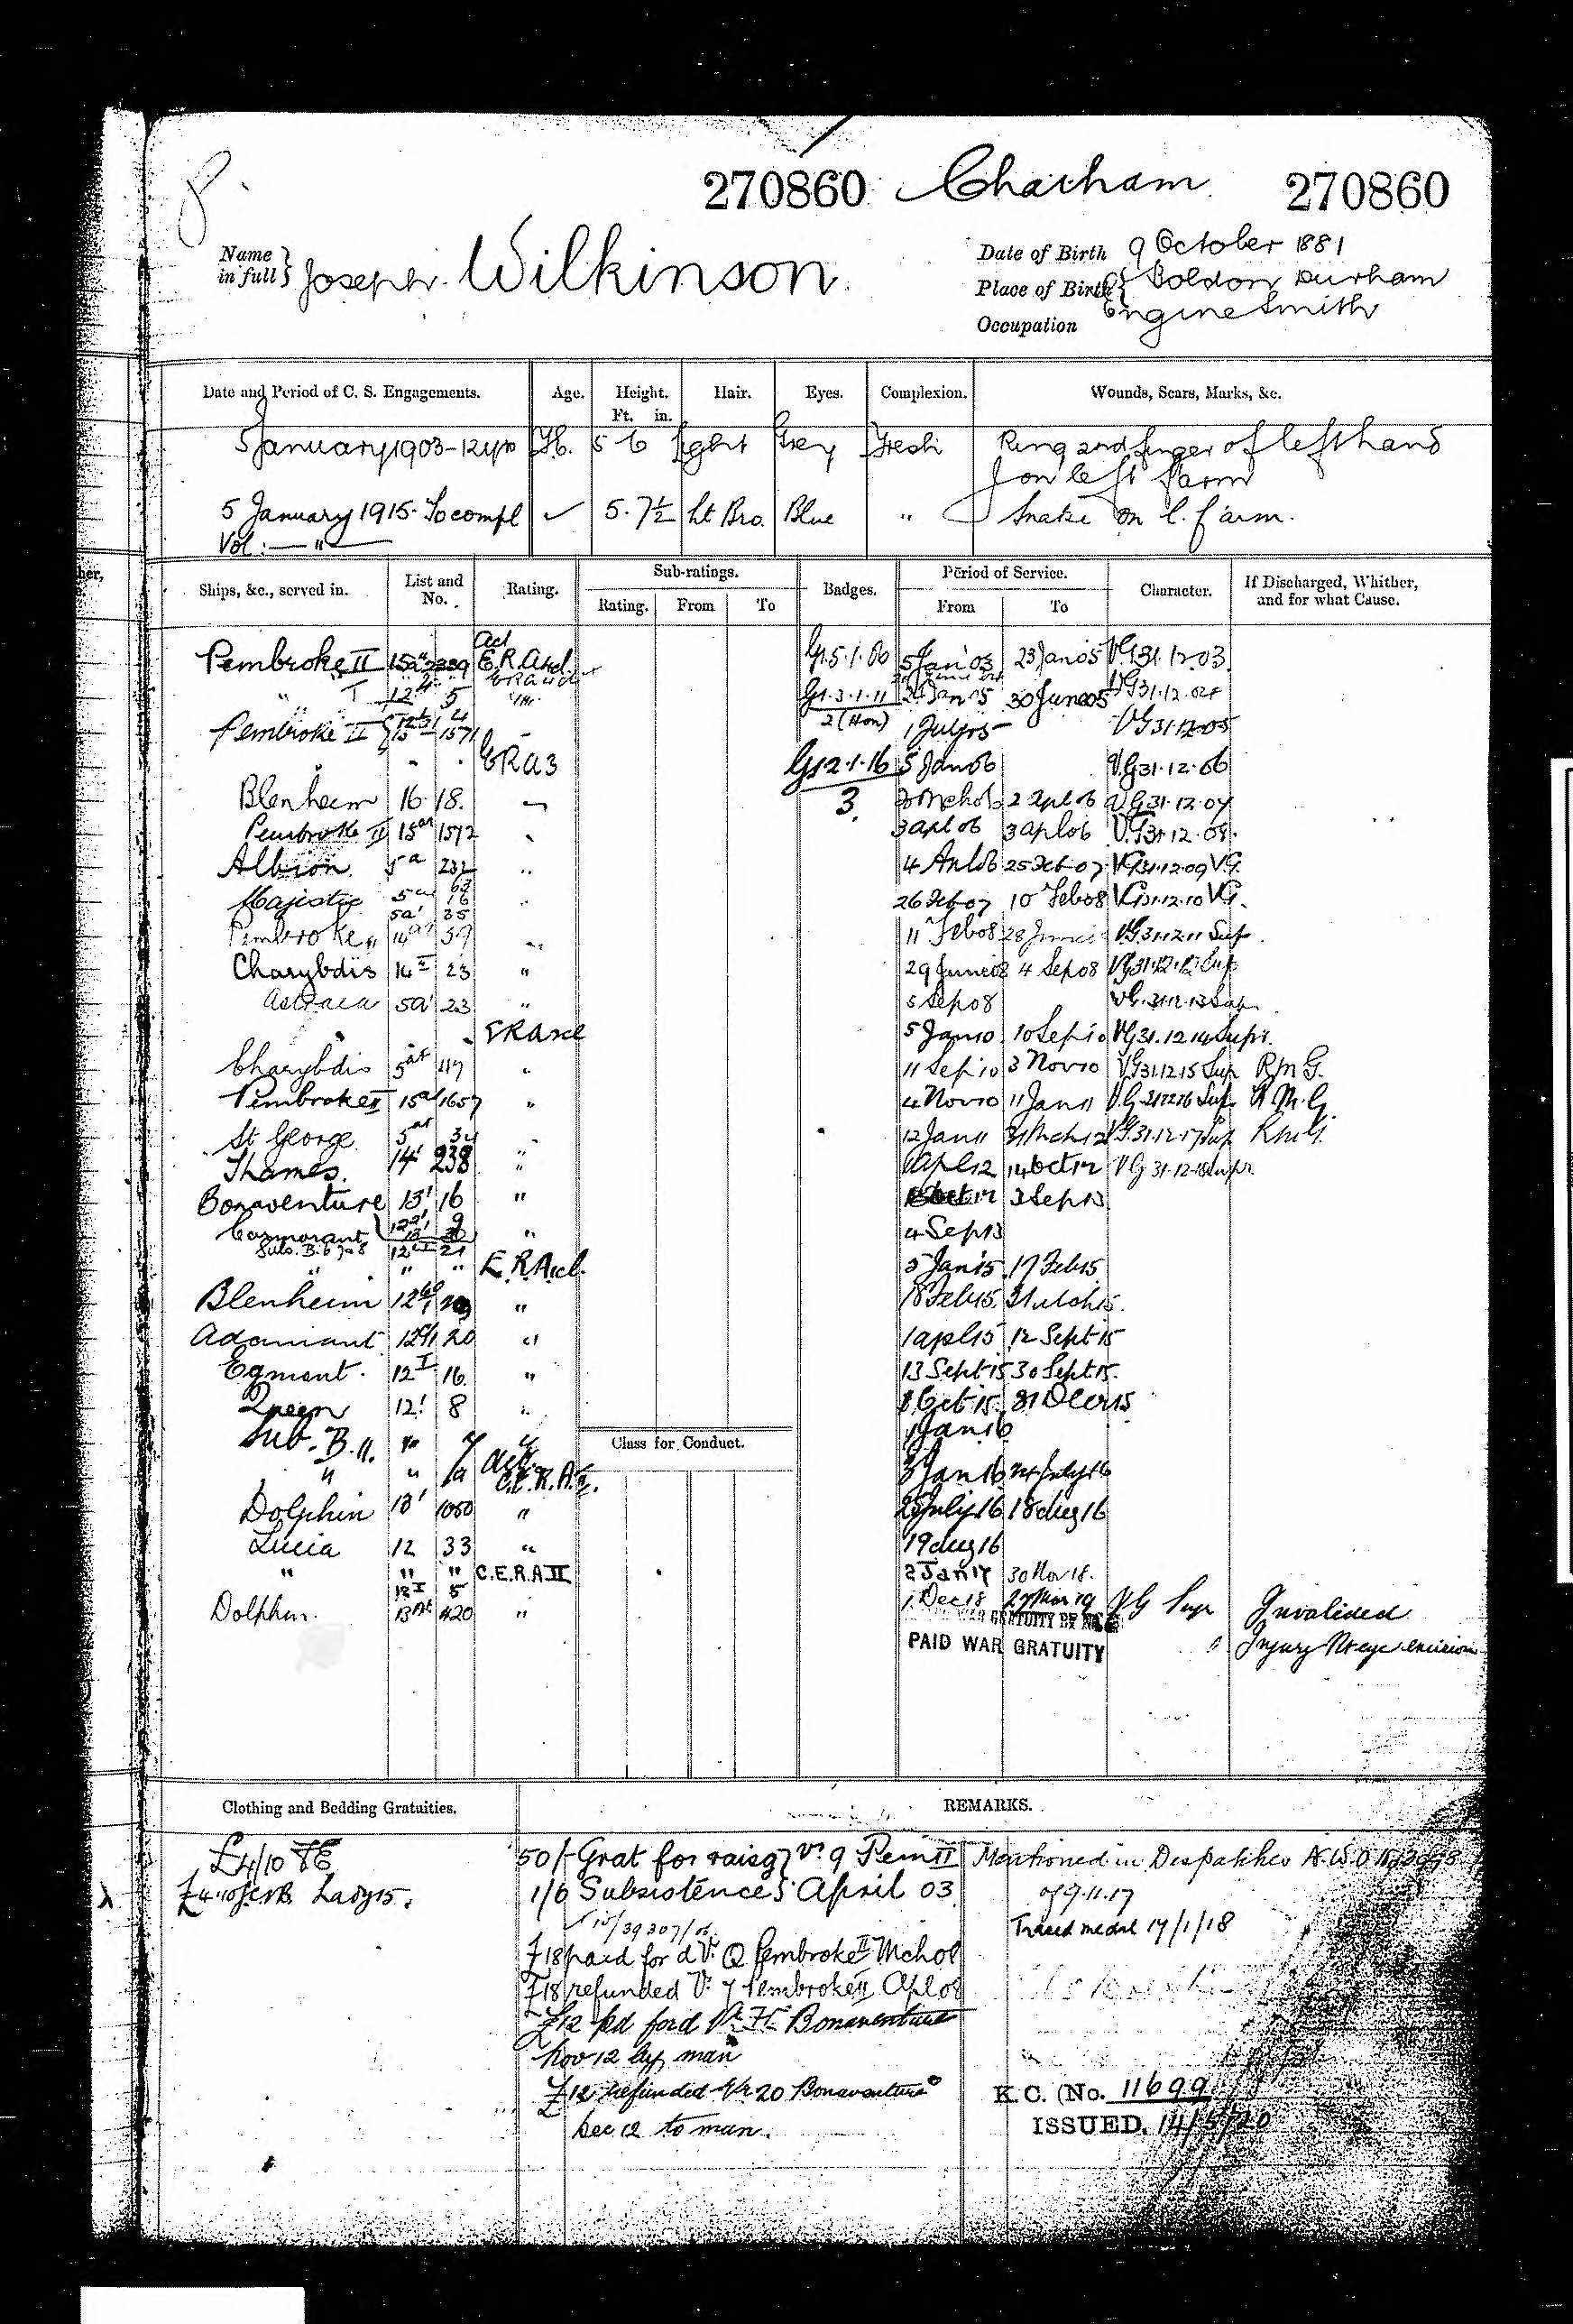 270860 Chatham 270860
Name in full} Joseph Wilkinson
Date of Birth 9 October 1881
Place of Birth} Boldon Durham
Occupation Engine Smith
Date and Period of C. S. Engagements. Age. Height. Ft. in. Hair. Eyes. Complexion. Wounds, Scars, Marks, &c.
5 January 1903 - 12 yrs 5 6 light Grey Fresh Ring 2nd finger of left hand
on left farm
5 January 1915. To compl 5. 7½ Lt Bro. Blue " Snake on l. f'arm.
Vol: — " —
Ships, &c., served in. List and No. Rating. Sub-ratings. Rating. From To Badges. Period of Service. From To Character. If Discharged, Whither, and for what Cause.
Pembroke II Act E.R.A 4cl. G1.5.1.06 5 Jan 03 23 Jan 05 VG 31.12.03
" I 5 G1.3.1.11 24 Jan 05 30 June 05 VG 31.12.04
Pembroke II 1571 2 (Non) 1 July 05 VG 31.12.05
" " " ERA 3 G1 2.1.16 5 Jan 06 VG 31.12.06
Blenheim 16 18. 3 2 Apl 06 VG 31.12.07
Pembroke II 15 1572 3 Apl 06 3 Apl 06 VG 31.12.08.
Albion 5a 232 " 4 Apl 06 25 Feb 07 VG 31.12.09 VG.
Majestic 5a 16 " 26 Feb 07 10 Feb 08 VG 31.12.10 VG.
5a' 35
Pembroke 14 57 " 11 Feb 08 28 June VG 31.12.11 Sup.
Charybdis 14 I 23 " 29 June 08 4 Sep 08 VG 31.12.12 Sup
Astraea 5a' 23 " 5 Sep 08 VG 31.12.13 Sup
" " ERA 2cl 5 Jan 10 10 Sep 10 VG 31.12.14 Supr.
Charybdis 5 117 " 11 Sep 10 3 Nov 10 VG 31.12.15 Sup R.M.G.
Pembroke II 15a 1657 " 4 Nov 10 11 Jan 11 V.G. 31.12.16 Sup. R.M.G.
St George 5 34 " 12 Jan 11 31 Mch 12 VG. 31.12.17 Sup R.M.G.
Thames. 14' 238 " 1 Apl 12 14 Oct 12 VG 31.12.18 Supr
Bonaventure 13' 16 " 15 Oct 12 3 Sep 13
Cormorant 9 " 4 Sep 13
Subs. B. 6 7 & 8 12 I 21
" " " E.R.A 1cl. 5 Jan 15 17 Feb 15
Blenheim 12 " 18 Feb 15. 31 Mch 15.
Adamant 12 20 " 1 Apl 15 12 Sept 15
Egmont. 12 I 16. " 13 Sept 15 30 Sept 15.
Queen 12' 8 " 1 Oct 15. 31 Decr 15
Sub. B.11. " 7 " 1 Jan 16
Class for Conduct.
" " 7a Act. C.E.R.A 2. 3 Jan 16 24 July 16
Dolphin 13' 1050 " 25 July 16 18 Aug 16
Lucia 12 33 " 19 Aug 16
" " " C.E.R.A II 2 Jan 17 30 Nov 18.
12 I 5
Dolphin. 13 420 " 1 Dec 18 27 Mar 19 VG Supr Invalided
PAID WAR GRATUITY Injury Rt eye excision
Clothing and Bedding Gratuities. REMARKS.
£4/10
50/- Grat for raisg Vr. 9 Pem II
1/6 Subsistence April 03
15/39307/06
£18 paid for d Vr. Q Pembroke II Mch 08
£18 refunded Vr. 7 Pembroke II Apl 08
£12 pd for d Vr. Bonaventure
Nov 12 by man
£12 refunded Vr. 20 Bonaventure
Dec 12 to man.
Mentioned in Despatches
of 9.11.17
Traced medal 17/1/18
K.C. (No. 11699
ISSUED. 14/5/20